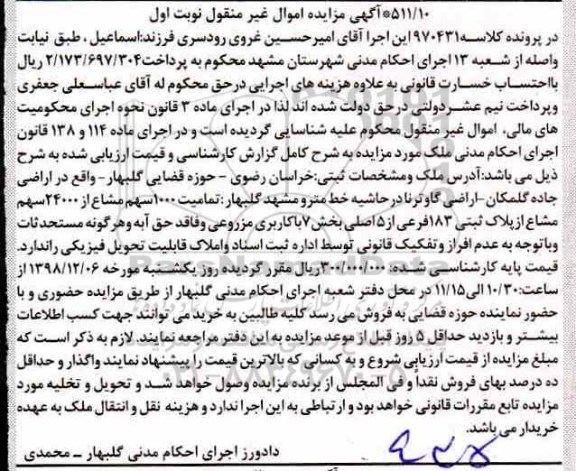 ۵۱۱/۱۰*آگهی مزایده اموال غیر منقول نوبت اول
در پرونده کلاسه۹۷۰۴۳۱ این اجرا آقای امیرحسین غروی رودسری فرزند:اسماعیل ، طبق نیابت
واصله از شعبه ۱۳ اجرای احکام مدنی شهرستان مشهد محکوم به پرداخت۲/۱۷۳/۶۹۷/۳۰۴ ریال
بااحتساب خسارت قانونی به علاوه هزینه های اجرایی درحق محکوم له آقای عباسعلی جعفری
وپرداخت نیم عشردولتی درحق دولت شده اند لذا در اجرای ماده ۳ قانون نحوه اجرای محکومیت
های مالی، اموال غیر منقول محکوم علیه شناسایی گردیده است و در اجرای ماده ۱۱۴ و ۱۳۸ قانون
اجرای احکام مدنی ملک مورد مزایده به شرح کامل گزارش کارشناسی و قیمت ارزیابی شده به شرح
ذیل می باشد:آدرس ملک ومشخصات ثبتی:خراسان رضوی - حوزه قضایی گلبهار- واقع در اراضی
جاده گلمکان -اراضی گاوترنادرحاشیه خط مترو مشهد گلبهار :تمامیت۱۰۰۰سهم مشاع از۲۴۰۰۰سهم
مشاع ازپلاک ثبتی ۱۸۳فرعی از۵اصلی بخش۷باکاربری مزروعی وفاقد حق آبه وهرگونه مستحدثات
وباتوجه به عدم افراز وتفکیک قانونی توسط اداره ثبت اسناد واملاک قابلیت تحویل فیزیکی راندارد.
قیمت پایه کارشناسی شده: ۳۰۰/۰۰۰/۰۰۰ریال مقرر گردیده روز یکشنبه مورخه ۱۳۹۸/۱۲/۰۶ از
ساعت:۱۰/۳۰ الی۱۱/۱۵ در محل دفتر شعبه اجرای احکام مدنی گلبهار از طریق مزایده حضوری و با
حضور نماینده حوزه قضایی به فروش می رسد کلیه طالبین به خرید می توانند جهت کسب اطلاعات
بیشتر و بازدید حداقل ۵ روز قبل از موعد مزایده به این دفتر مراجعه نمایند. لازم به ذکر است که
مبلغ مزایده از قیمت ارزیابی شروع و به کسانی که بالاترین قیمت را پیشنهاد نمایند واگذار و حداقل
ده درصد بهای فروش نقدا و فی المجلس از برنده مزایده وصول خواهد شد و تحویل و تخلیه مورد
مزایده تابع مقررات قانونی خواهد بود و ارتباطی به این اجرا ندارد و هزینه نقل و انتقال ملک به عهده
خریدار می باشد.
دادورز اجرای احکام مدنی گلبهار ــ محمدی